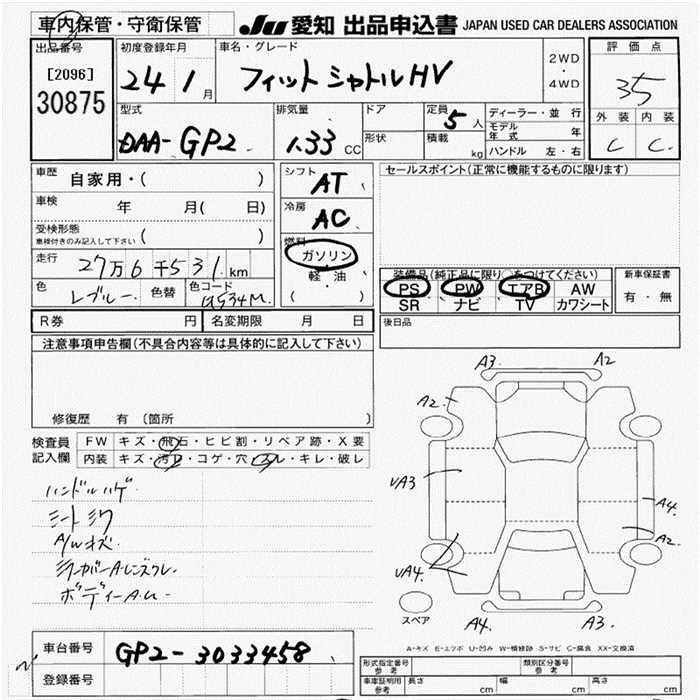 車内保管・守衛保管 JU 愛知 出品申込書 JAPAN USED CAR DEALERS ASSOCIATION
出品番号
[2096]
30875
初度登録年月
24 1 月
車名・グレード
フィット シャトルHV
2WD
・
4WD
評価点
35
外装 内装
C C
型式
DAA-GP2
排気量
1.33 CC
ドア
形状
定員 5 人
積載 kg
ディーラー・並行
モデル年式 年
ハンドル 左・右
車歴 自家用・( )
車検 年 月( 日)
受検形態
車検付きのみ記入して下さい ( )
走行 27万6千531 km
色 レブルー 色替 色コード
シフト AT
冷房 AC
燃料 ガソリン
・
軽・油
( )
セールスポイント(正常に機能するものに限ります)
装備品(純正品に限り○をつけてください)
PS・PW・エアB AW
SR ナビ TV カワシート
新車保証書
有・無
後日品
R券 円 名変期限 月 日
注意事項申告欄(不具合内容等は具体的に記入して下さい)
修復歴 有 (箇所 )
検査員記入欄
FW キズ・飛石・ヒビ割・リペア跡・X要
内装 キズ・汚レ・コゲ・穴・スレ・キレ・破レ
ハンドルハゲ
シートシワ
A/Wキズ
ミラーカバーA・レンズスレ
ボディーA・U-
A3 A2
A2
UA3
A4
A2
UA4
A4 A3
スペア
A-キズ E-エクボ U-凹み W-補修跡 S-サビ C-腐食 XX-交換済
車台番号 GP2-3033458
登録番号
形式指定番号
参考
類別区分番号
参考
車庫証明用
参考
長さ cm 幅 cm 高さ cm